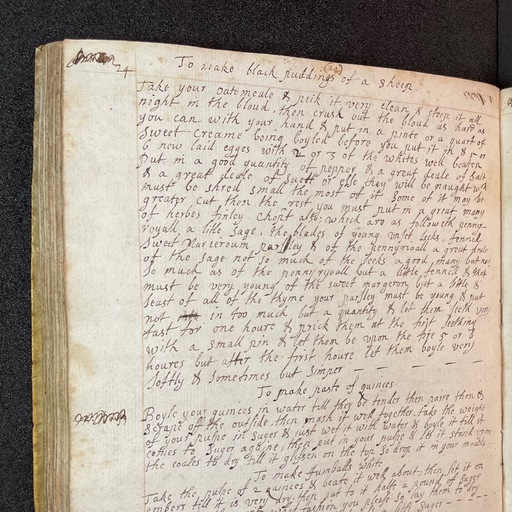 24
To make black puddings of a sheep
Take your oatemeale & pick it very clean & steep it all
night in the bloud, then crush out the bloud as hard as
you can with your hand & put in a pinte or a quart of
sweet Creame being boyled before you put it in & 5 or
6 new laid egges with 2 or 3 of the whites well beaten
Put in a good quantity of pepper & a great deale of Salt
& a great deale of Suett or else they will be naught with
must be shred small the most of it some of it may be
greater cut then the rest you must put in a great many
of herbes finley Chopt also; which are as followeth penny-
royall, a litle sage, the blades of young leeks, fennill
sweet Marieroum, parsley & of the pennyrioall a great deale
of the sage not so much of the leeks a good many but not
so much as of the pennyryoall but a litle fennill & that
must be very young of the sweet margerom but a litle &
least of all of the thyme your parsley must be young & put
not in too much but a quantity & let them seeth very
fast for one houre & prick them at the first seething
with a small pin & let them be upon the fire 5 or 6
houres but after the first houre let them boyle very
softly & sometimes but simper
To make paste of quinces
Boyle your quinces in water till they be tender then paire them &
scrape off the outside then mash it well together take the weight
of your pulpe in suger & just wet it with water & boyle it till it
comes to suger againe, then put in your pulpe & let it stand upon
the coales to dry till it glissen on the top so drop it in your moulds
To make Jumballs white
Take the pulpe of 2 quinces & beate it well about then set it on
embers till it is very dry then put to it halfe a pound of suger
fashion you please so lay them to dry
suger